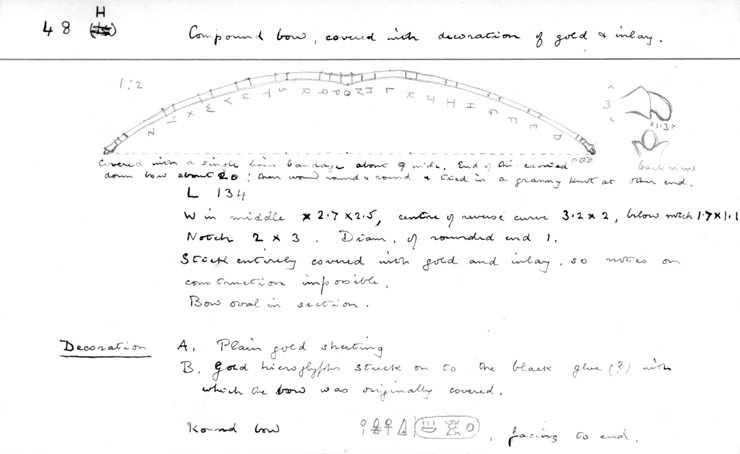 48 H
Compound bow, covered with decoration of gold & inlay.
1:2
Z Y X W V U T S R Q P O N M L K J H G F E D
3
1·3
back view
Covered with a single linen bandage about 9 wide. End of this carried
down bow about 20: then wound round & round & tied in a granny knot at other end.
L 134
W in middle 2.7 x 2.5, centre of reverse curve 3.2 x 2, below notch 1.7 x 1.1
Notch 2 x 3. Diam. of rounded end 1.
Stick entirely covered with gold and inlay, so notes on
construction impossible.
Bow oval in section.
Decoration A. Plain gold sheeting
B. Gold hieroglyphs stuck on to the black glue (?) with
which the bow was originally covered.
Round bow , facing to end.